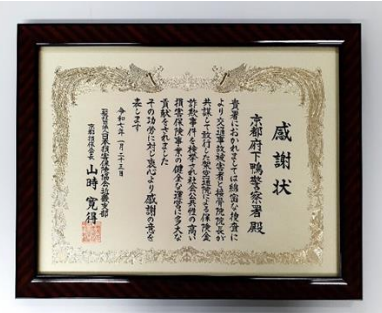 感謝状
京都府下鴨警察署 殿
貴署におかれましては綿密な捜査に
より交通事故被害者と接骨院院長が
共謀して敢行した架空通院による保険金
詐欺事件を検挙され社会公共性の高い
損害保険事業の健全な運営に多大な
貢献をされました
その功労に対し衷心より感謝の意を
表します
令和七年一月二十三日
日本損害保険協会近畿支部
京都損保会会長 山時 寛得